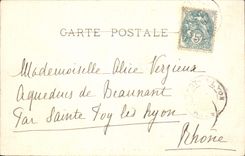 CARTE POSTALE
Mademoiselle Alice Verzieux
Aqueducs de Beaunant
Par Sainte Foy les Lyon
Rhône